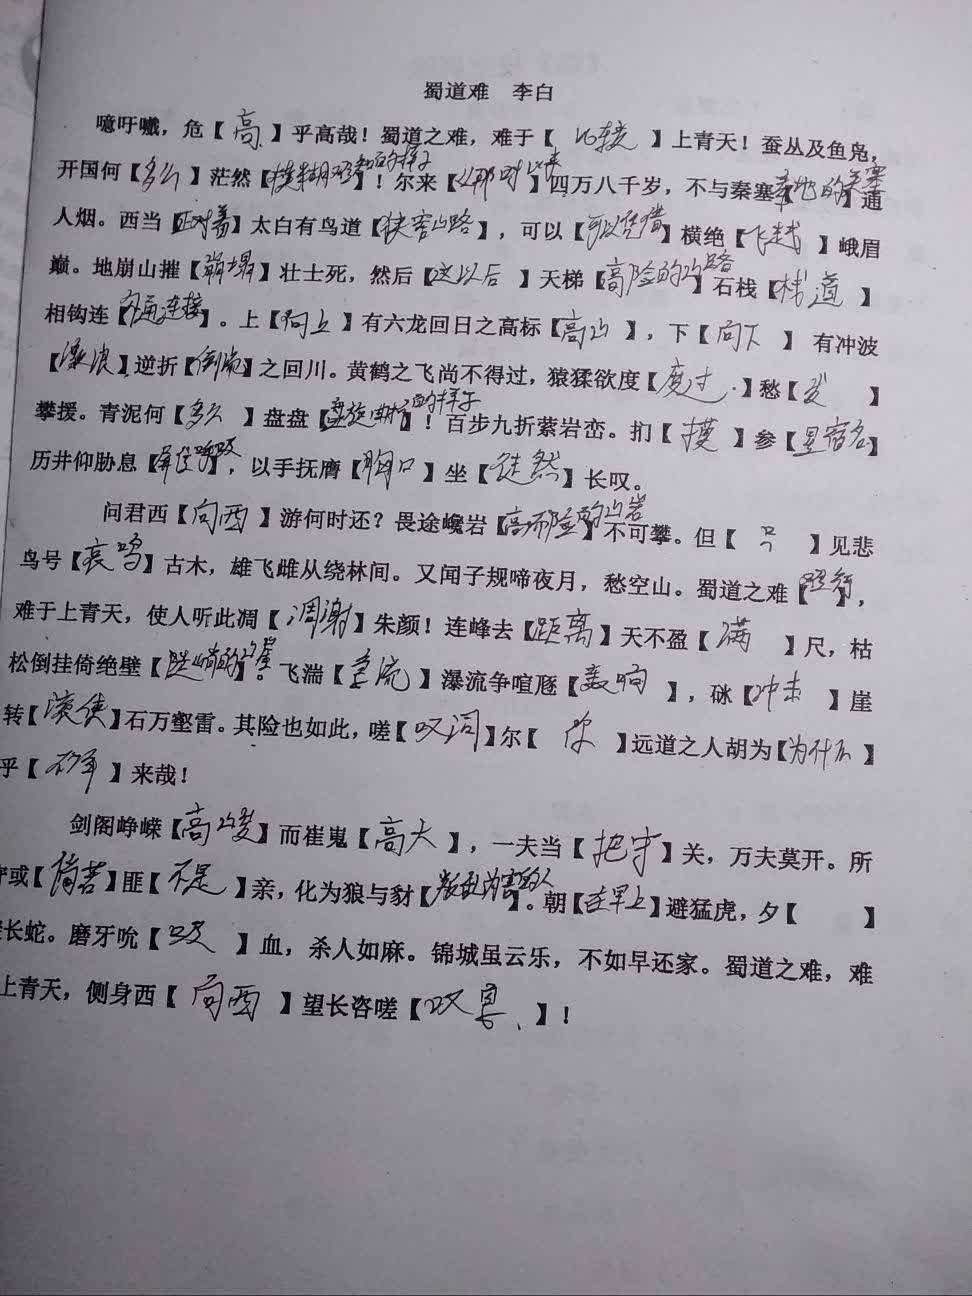 蜀道难 李白
噫吁嚱，危【高】乎高哉！蜀道之难，难于【比较】上青天！蚕丛及鱼凫，
开国何【多么】茫然【模糊难知的样子】！尔来【从那时以来】四万八千岁，不与秦塞【秦地的关塞】通
人烟。西当【正对着】太白有鸟道【狭窄山路】，可以【可以凭借】横绝【飞越】峨眉
巅。地崩山摧【崩塌】壮士死，然后【这以后】天梯【高险的山路】石栈【栈道】
相钩连【勾通连接】。上【向上】有六龙回日之高标【高山】，下【向下】有冲波
【激浪】逆折【倒流】之回川。黄鹤之飞尚不得过，猿猱欲度【度过】愁【发】
攀援。青泥何【多么】盘盘【盘旋曲折的样子】！百步九折萦岩峦。扪【摸】参【星宿名】
历井仰胁息【屏住呼吸】，以手抚膺【胸口】坐【徒然】长叹。
问君西【向西】游何时还？畏途巉岩【高而险的山岩】不可攀。但【只】见悲
鸟号【哀鸣】古木，雄飞雌从绕林间。又闻子规啼夜月，愁空山。蜀道之难【】，
难于上青天，使人听此凋【凋谢】朱颜！连峰去【距离】天不盈【满】尺，枯
松倒挂倚绝壁【陡峭的山崖】。飞湍【急流】瀑流争喧豗【轰响】，砯【冲击】崖
转【滚使】石万壑雷。其险也如此，嗟【叹词】尔【你】远道之人胡为【为什么】
乎【】来哉！
剑阁峥嵘【高峻】而崔嵬【高大】，一夫当【把守】关，万夫莫开。所
守或【倘若】匪【不是】亲，化为狼与豺【叛乱为害的人】。朝【在早上】避猛虎，夕【】
长蛇。磨牙吮【吸】血，杀人如麻。锦城虽云乐，不如早还家。蜀道之难，难
上青天，侧身西【向西】望长咨嗟【叹息】！